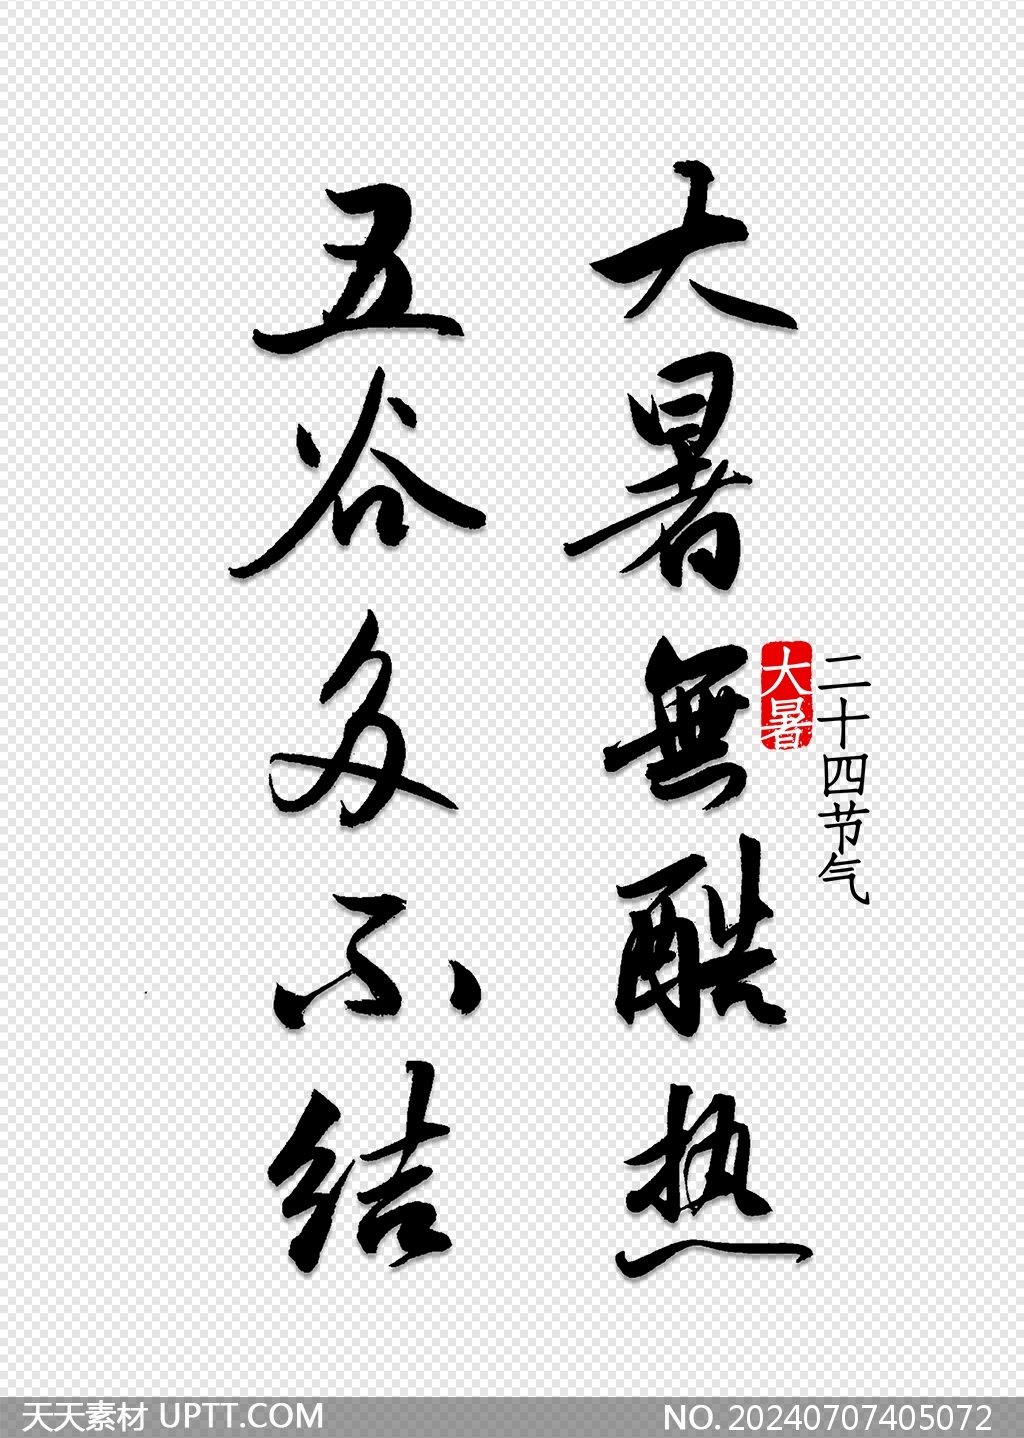 大暑無酷热
五谷多不结
大暑
二十四节气
天天素材 UPTT.COM
NO. 20240707405072